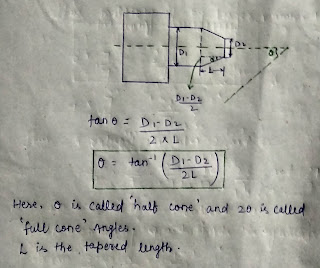 D1
D2
θ
L
D1-D2
2
tan θ = D1-D2
2 × L
θ = tan⁻¹ (D1-D2
2L)
Here, θ is called 'half cone' and 2θ is called
'full cone' Angles.
L is the tapered length.